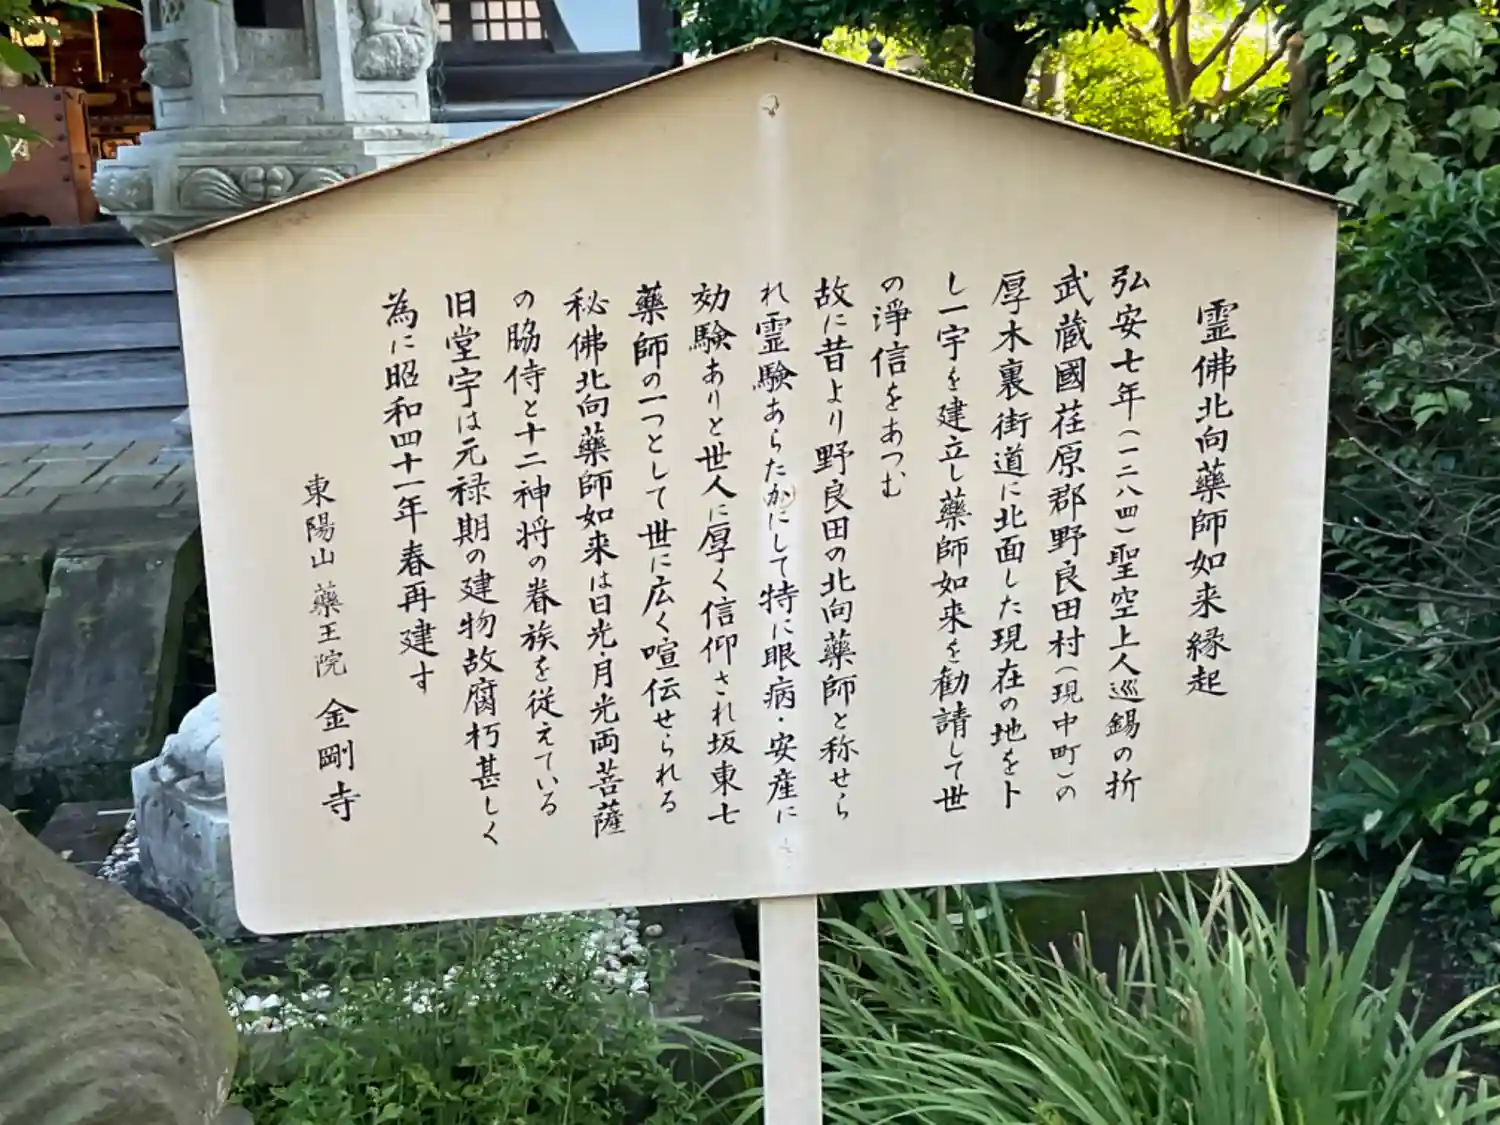 霊佛北向藥師如来縁起
弘安七年（一二八四）聖空上人巡錫の折
武蔵國荏原郡野良田村（現中町）の
厚木裏街道に北面した現在の地をト
し一宇を建立し藥師如来を勧請して世
の淨信をあつむ
故に昔より野良田の北向藥師と称せら
れ霊験あらたかにして特に眼病・安産に
効験ありと世人に厚く信仰され坂東七
藥師の一つとして世に広く喧伝せられる
秘佛北向藥師如来は日光月光両菩薩
の脇侍と十二神将の眷族を従えている
旧堂宇は元禄期の建物故腐朽甚しく
為に昭和四十一年春再建す
東陽山 藥王院 金剛寺